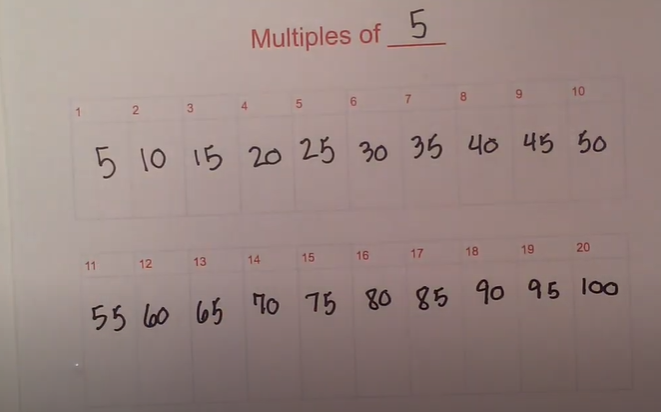 Multiples of 5
1 2 3 4 5 6 7 8 9 10
5 10 15 20 25 30 35 40 45 50
11 12 13 14 15 16 17 18 19 20
55 60 65 70 75 80 85 90 95 100